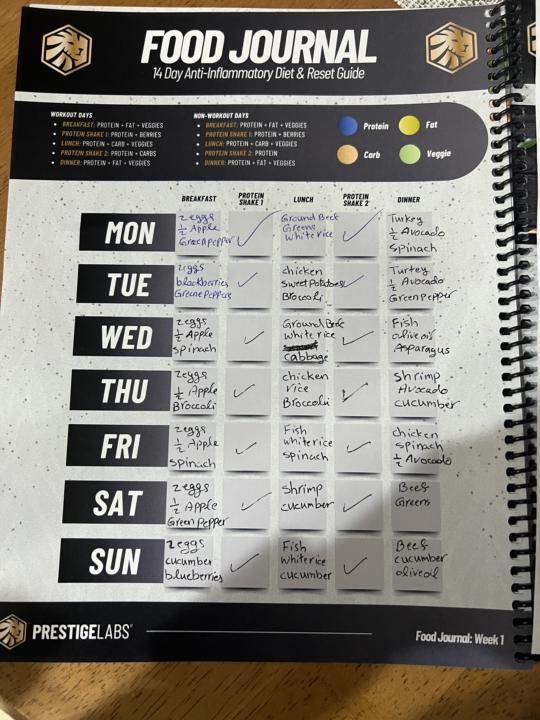 FOOD JOURNAL
14 Day Anti-Inflammatory Diet & Reset Guide
WORKOUT DAYS
• BREAKFAST: PROTEIN + FAT + VEGGIES
• PROTEIN SHAKE 1: PROTEIN + BERRIES
• LUNCH: PROTEIN + CARB + VEGGIES
• PROTEIN SHAKE 2: PROTEIN + CARBS
• DINNER: PROTEIN + FAT + VEGGIES
NON-WORKOUT DAYS
• BREAKFAST: PROTEIN + FAT + VEGGIES
• PROTEIN SHAKE 1: PROTEIN + BERRIES
• LUNCH: PROTEIN + CARB + VEGGIES
• PROTEIN SHAKE 2: PROTEIN
• DINNER: PROTEIN + FAT + VEGGIES
Protein
Fat
Carb
Veggie
BREAKFAST
PROTEIN
SHAKE 1
LUNCH
PROTEIN
SHAKE 2
DINNER
MON
2 eggs
½ Apple
Green pepper
Ground Beef
Greens
White rice
Turkey
½ Avocado
spinach
TUE
2 eggs
blackberries
Greene Peppers
chicken
sweet potatoes
Broccoli
Turkey
½ Avocado
Green Pepper
WED
2 eggs
½ Apple
spinach
Ground Beef
white rice
Cabbage
Fish
olive oil
Asparagus
THU
2 eggs
½ Apple
Broccoli
chicken
rice
Broccoli
Shrimp
Avocado
cucumber
FRI
2 eggs
½ Apple
spinach
Fish
white rice
spinach
chicken
spinach
½ Avocado
SAT
2 eggs
½ Apple
Green Pepper
Shrimp
cucumber
Beef
Greens
SUN
2 eggs
cucumber
blueberries
Fish
white rice
cucumber
Beef
cucumber
olive oil
PRESTIGE LABS®
Food Journal: Week 1